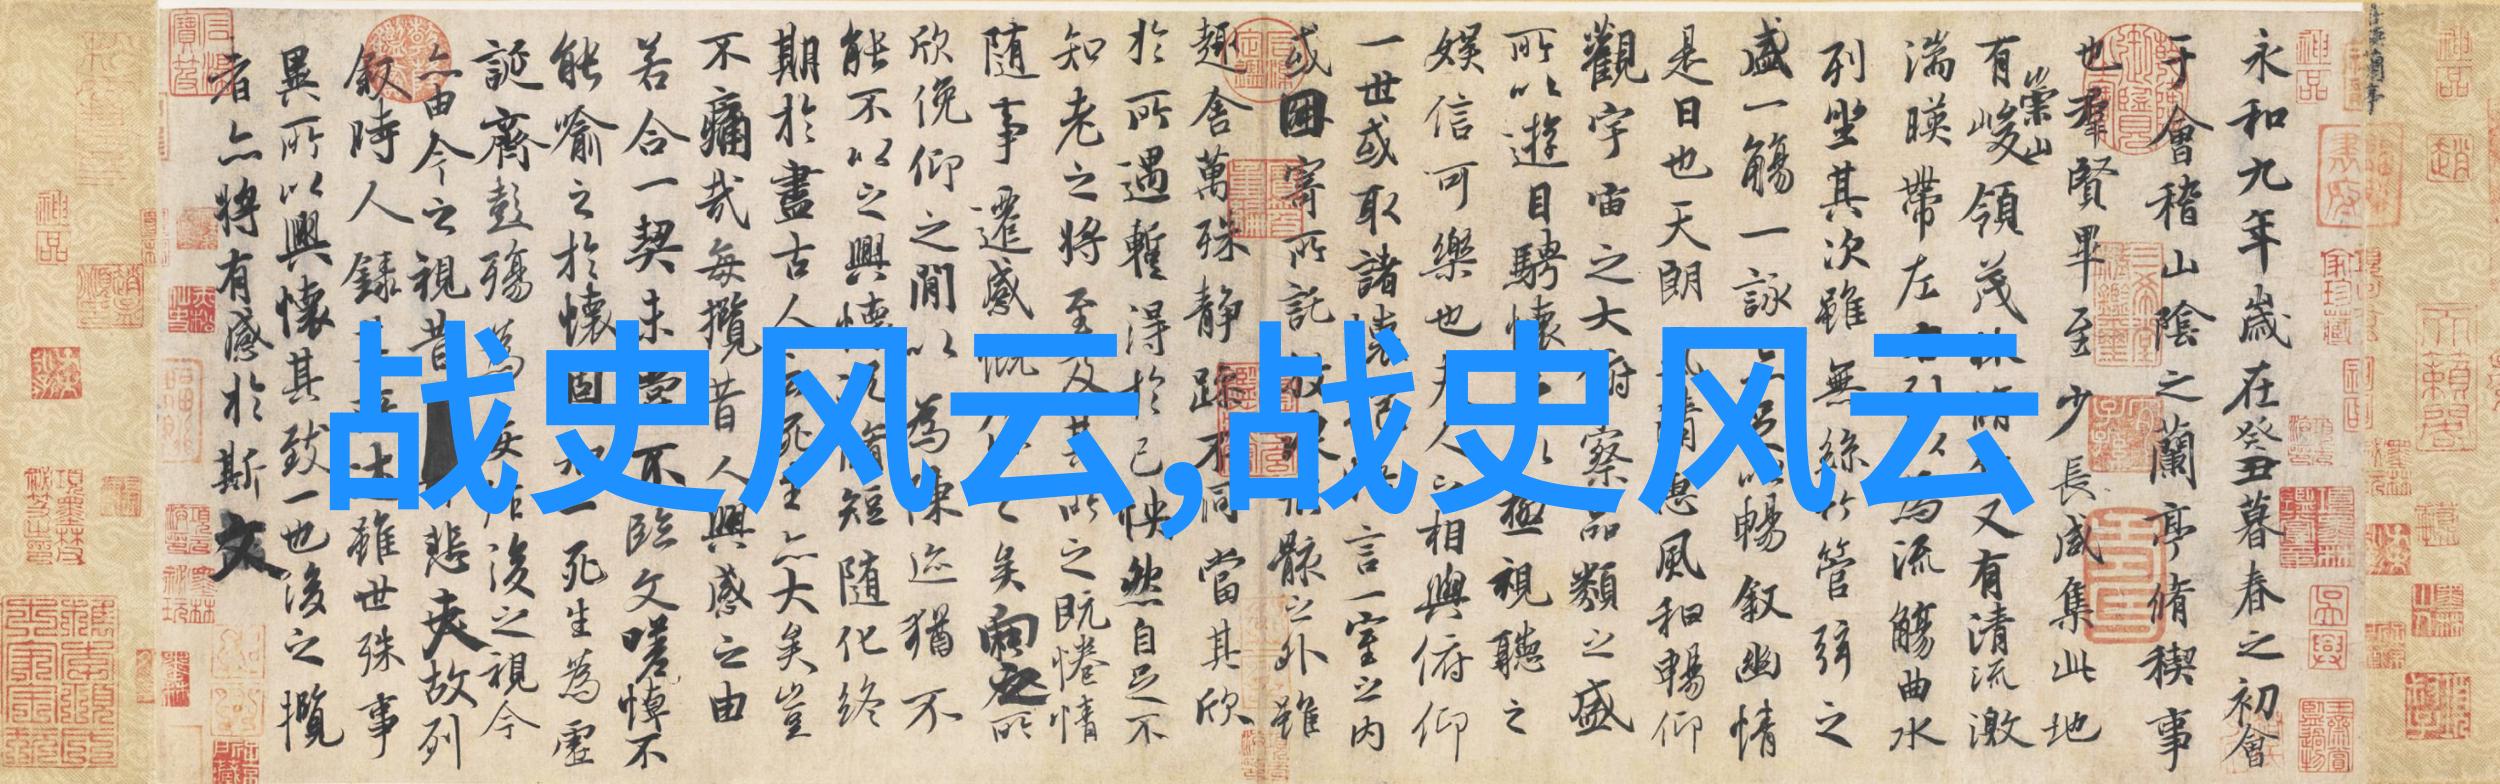 战史风云,战史风云
永和九年歲在癸丑暮春之初會
于會稽山陰之蘭亭脩稧事
也羣賢畢至少長咸集此地
有崇山峻領茂林脩竹又有清流激
湍暎帶左右列以為流觴曲水
列坐其次雖無絲竹管弦之
盛一觴一詠亦足以暢敘幽情
是日也天朗氣清惠風和暢仰
觀宇宙之大俯察品類之盛
所以遊目騁懷足以極視聽之
娛信可樂也夫人之相與俯仰
一世或取諸懷抱悟言一室之內
或因寄所託放浪形骸之外雖
趣舍萬殊靜躁不同當其欣
於所遇暫得於己怏然自足不
知老之將至及其所之既惓情
隨事遷感慨係之矣向之所
欣俛仰之閒以為陳迹猶不
能不以之興懷況脩短隨化終
期於盡古人云死生亦大矣豈
不痛哉每攬昔人興感之由
若合一契未嘗不臨文嗟悼不
能喻之於懷固知一死生為虛
誕齊彭殤為妄作後之視今
亦由今之視昔悲夫故列
敘時人錄其所述雖世殊事
異所以興懷其致一也後之攬
者亦將有感於斯文